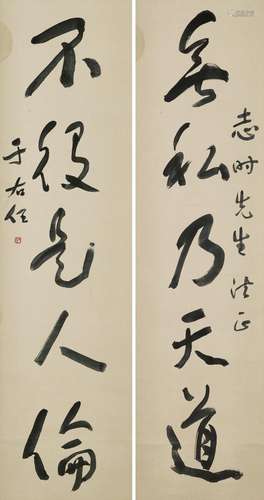 無私乃天道
志时先生 法正
不役是人倫
于右任